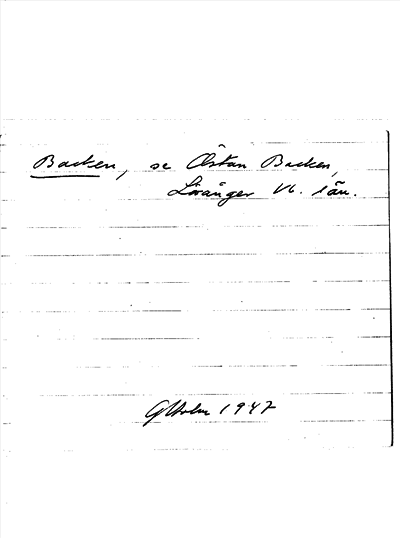 Backen, se Östan Backen,
Lövånger Vb. län.
GHolm 1947